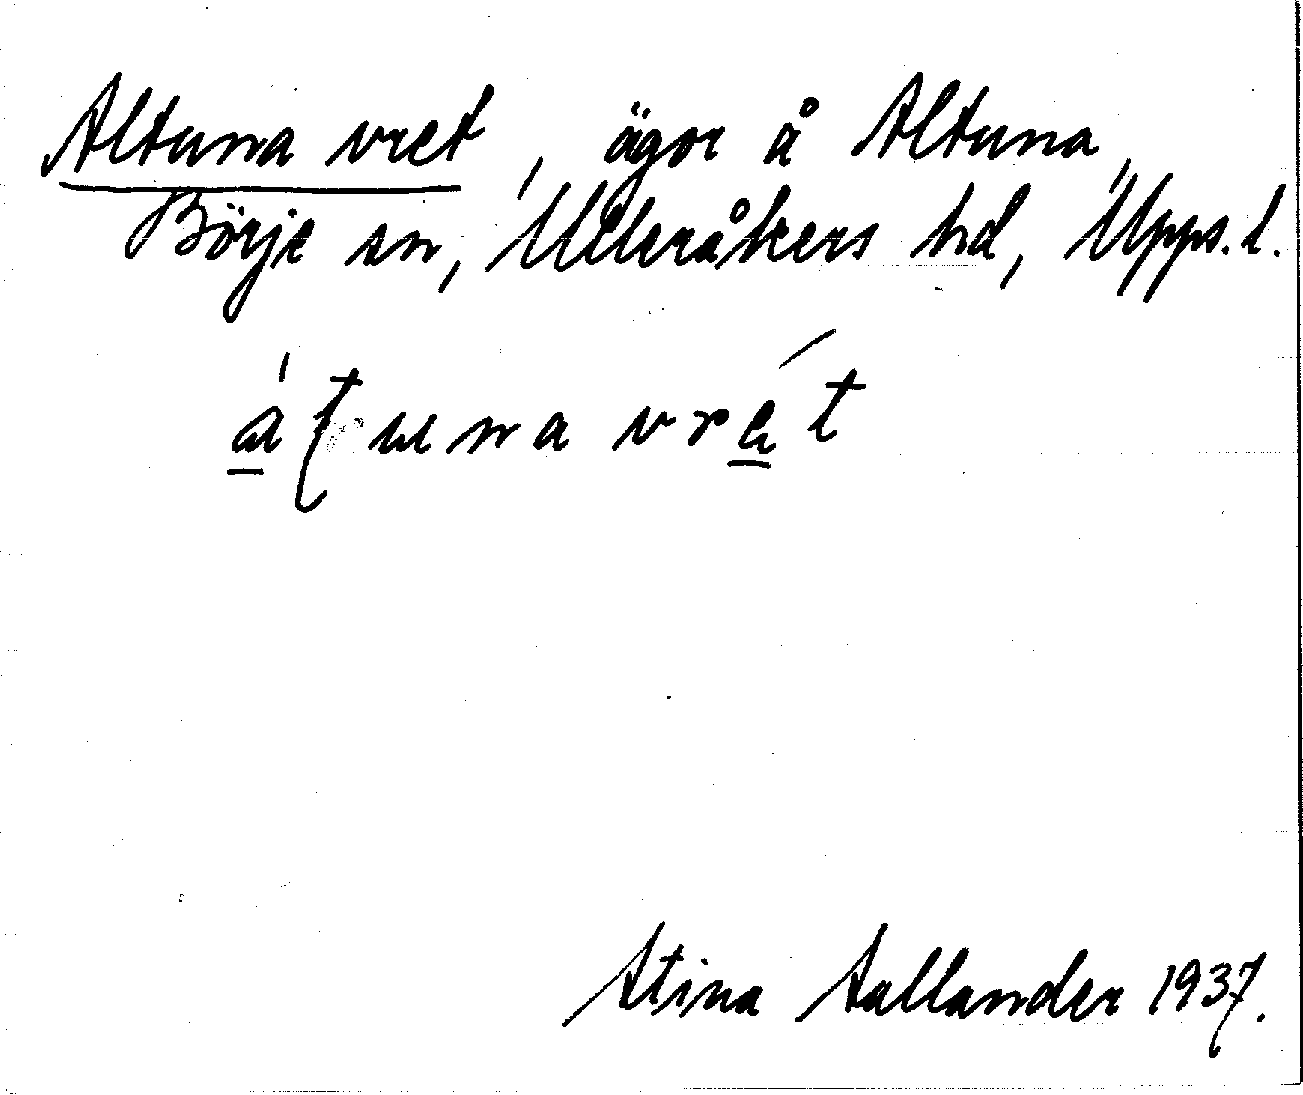 Altuna vret, ägor å Altuna,
Börje sn, Ulleråkers hd, Upps. l.
a̲ʈuna vre̲t
Stina Sallander 1937.